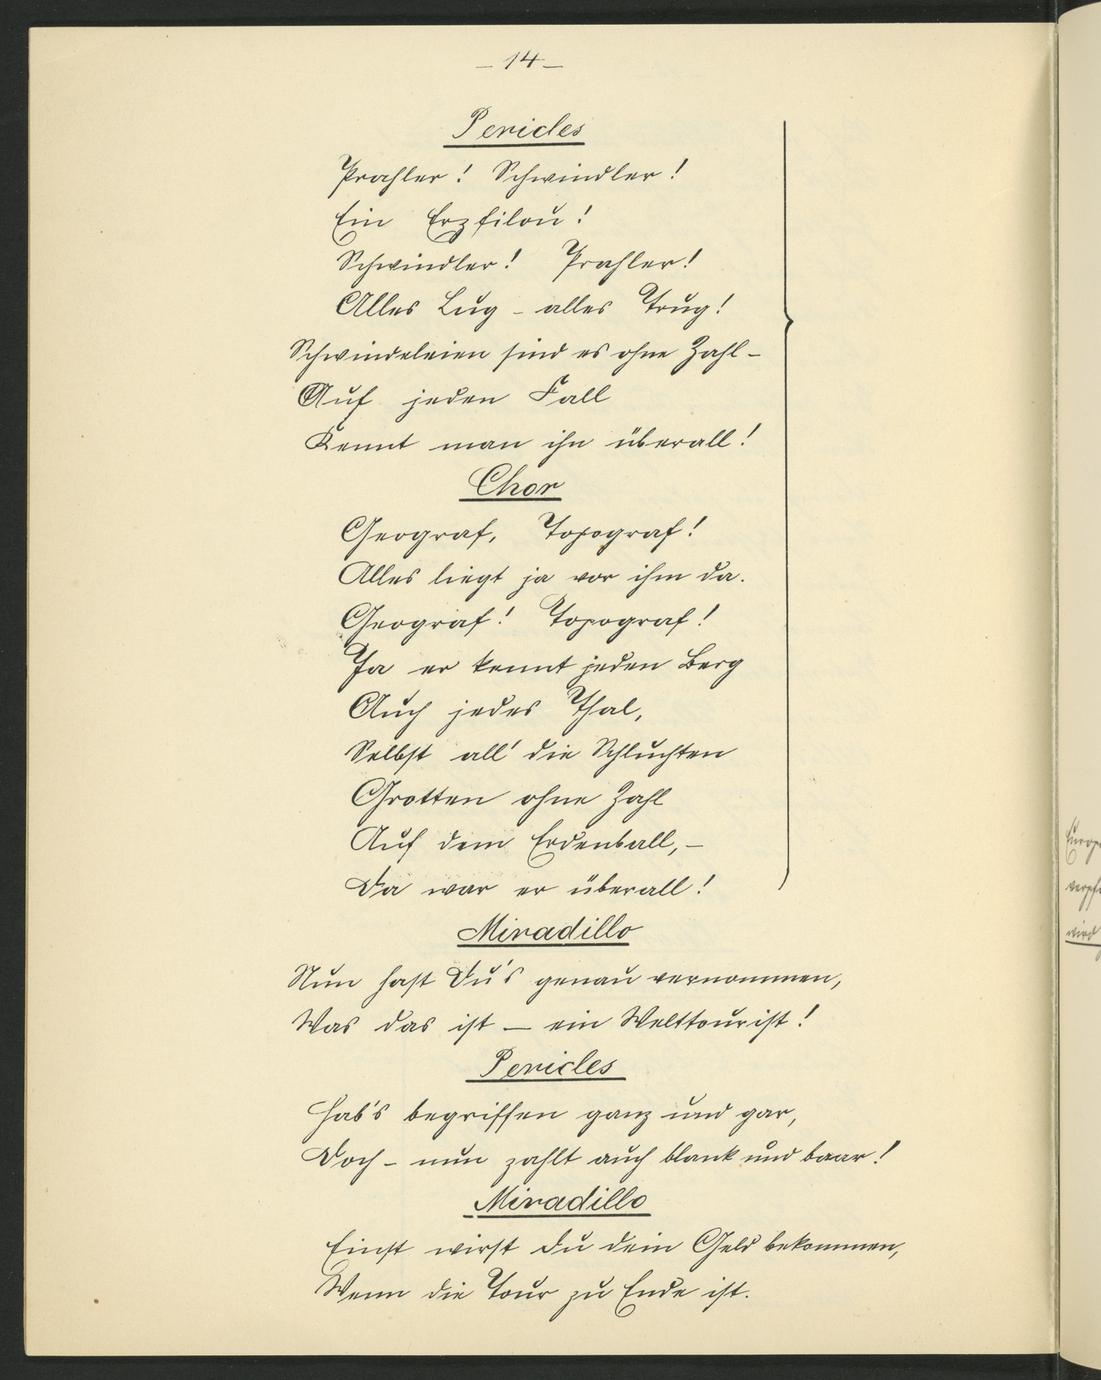 – 14 –
Pericles
Prahler! Schwindler!
Ein Erzfilou!
Schwindler! Prahler!
Alles Lug – alles Trug!
Schwindeleien sind es ohne Zahl –
Auf jeden Fall
Kennt man ihn überall!
Chor
Geograf, Topograf!
Alles liegt ja vor ihm da.
Geograf! Topograf!
Ja er kennt jeden Berg
Auch jedes Thal,
Selbst all' die Schluchten
Grotten ohne Zahl
Auf dem Erdenball, –
Da war er überall!
Miradillo
Nun hast Du's genau vernommen,
Was das ist – ein Welttourist!
Pericles
Hab's begriffen ganz und gar,
Doch – nun zahlt auch blank und baar!
Miradillo
Einst wirst du dein Geld bekommen,
Wenn die Tour zu Ende ist.
wird